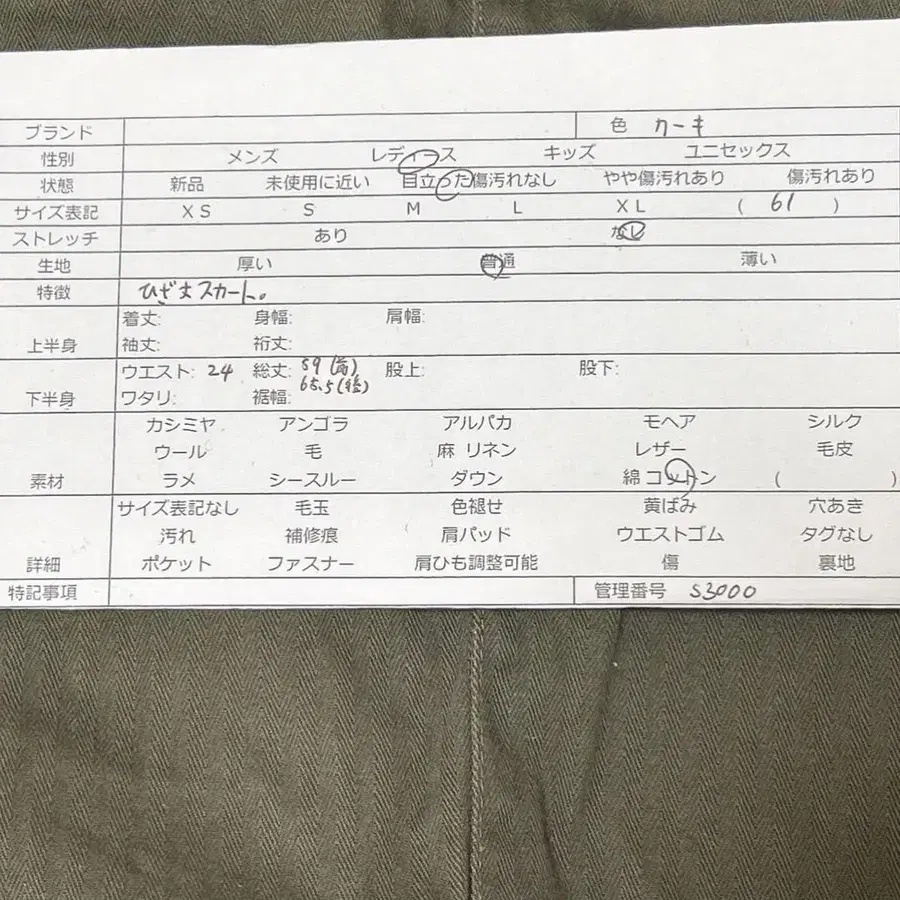 ブランド 色 カーキ
性別 メンズ レディース キッズ ユニセックス
状態 新品 未使用に近い 目立った傷汚れなし やや傷汚れあり 傷汚れあり
サイズ表記 XS S M L XL ( 61 )
ストレッチ あり なし
生地 厚い 普通 薄い
特徴 ひざ丈スカート。
着丈: 身幅: 肩幅:
上半身 袖丈: 裄丈:
ウエスト: 24 総丈: 59(前) 股上: 股下:
65.5(後)
下半身 ワタリ: 裾幅:
カシミヤ アンゴラ アルパカ モヘア シルク
ウール 毛 麻 リネン レザー 毛皮
素材 ラメ シースルー ダウン 綿 コットン ( )
サイズ表記なし 毛玉 色褪せ 黄ばみ 穴あき
汚れ 補修痕 肩パッド ウエストゴム タグなし
詳細 ポケット ファスナー 肩ひも調整可能 傷 裏地
特記事項 管理番号 S3000